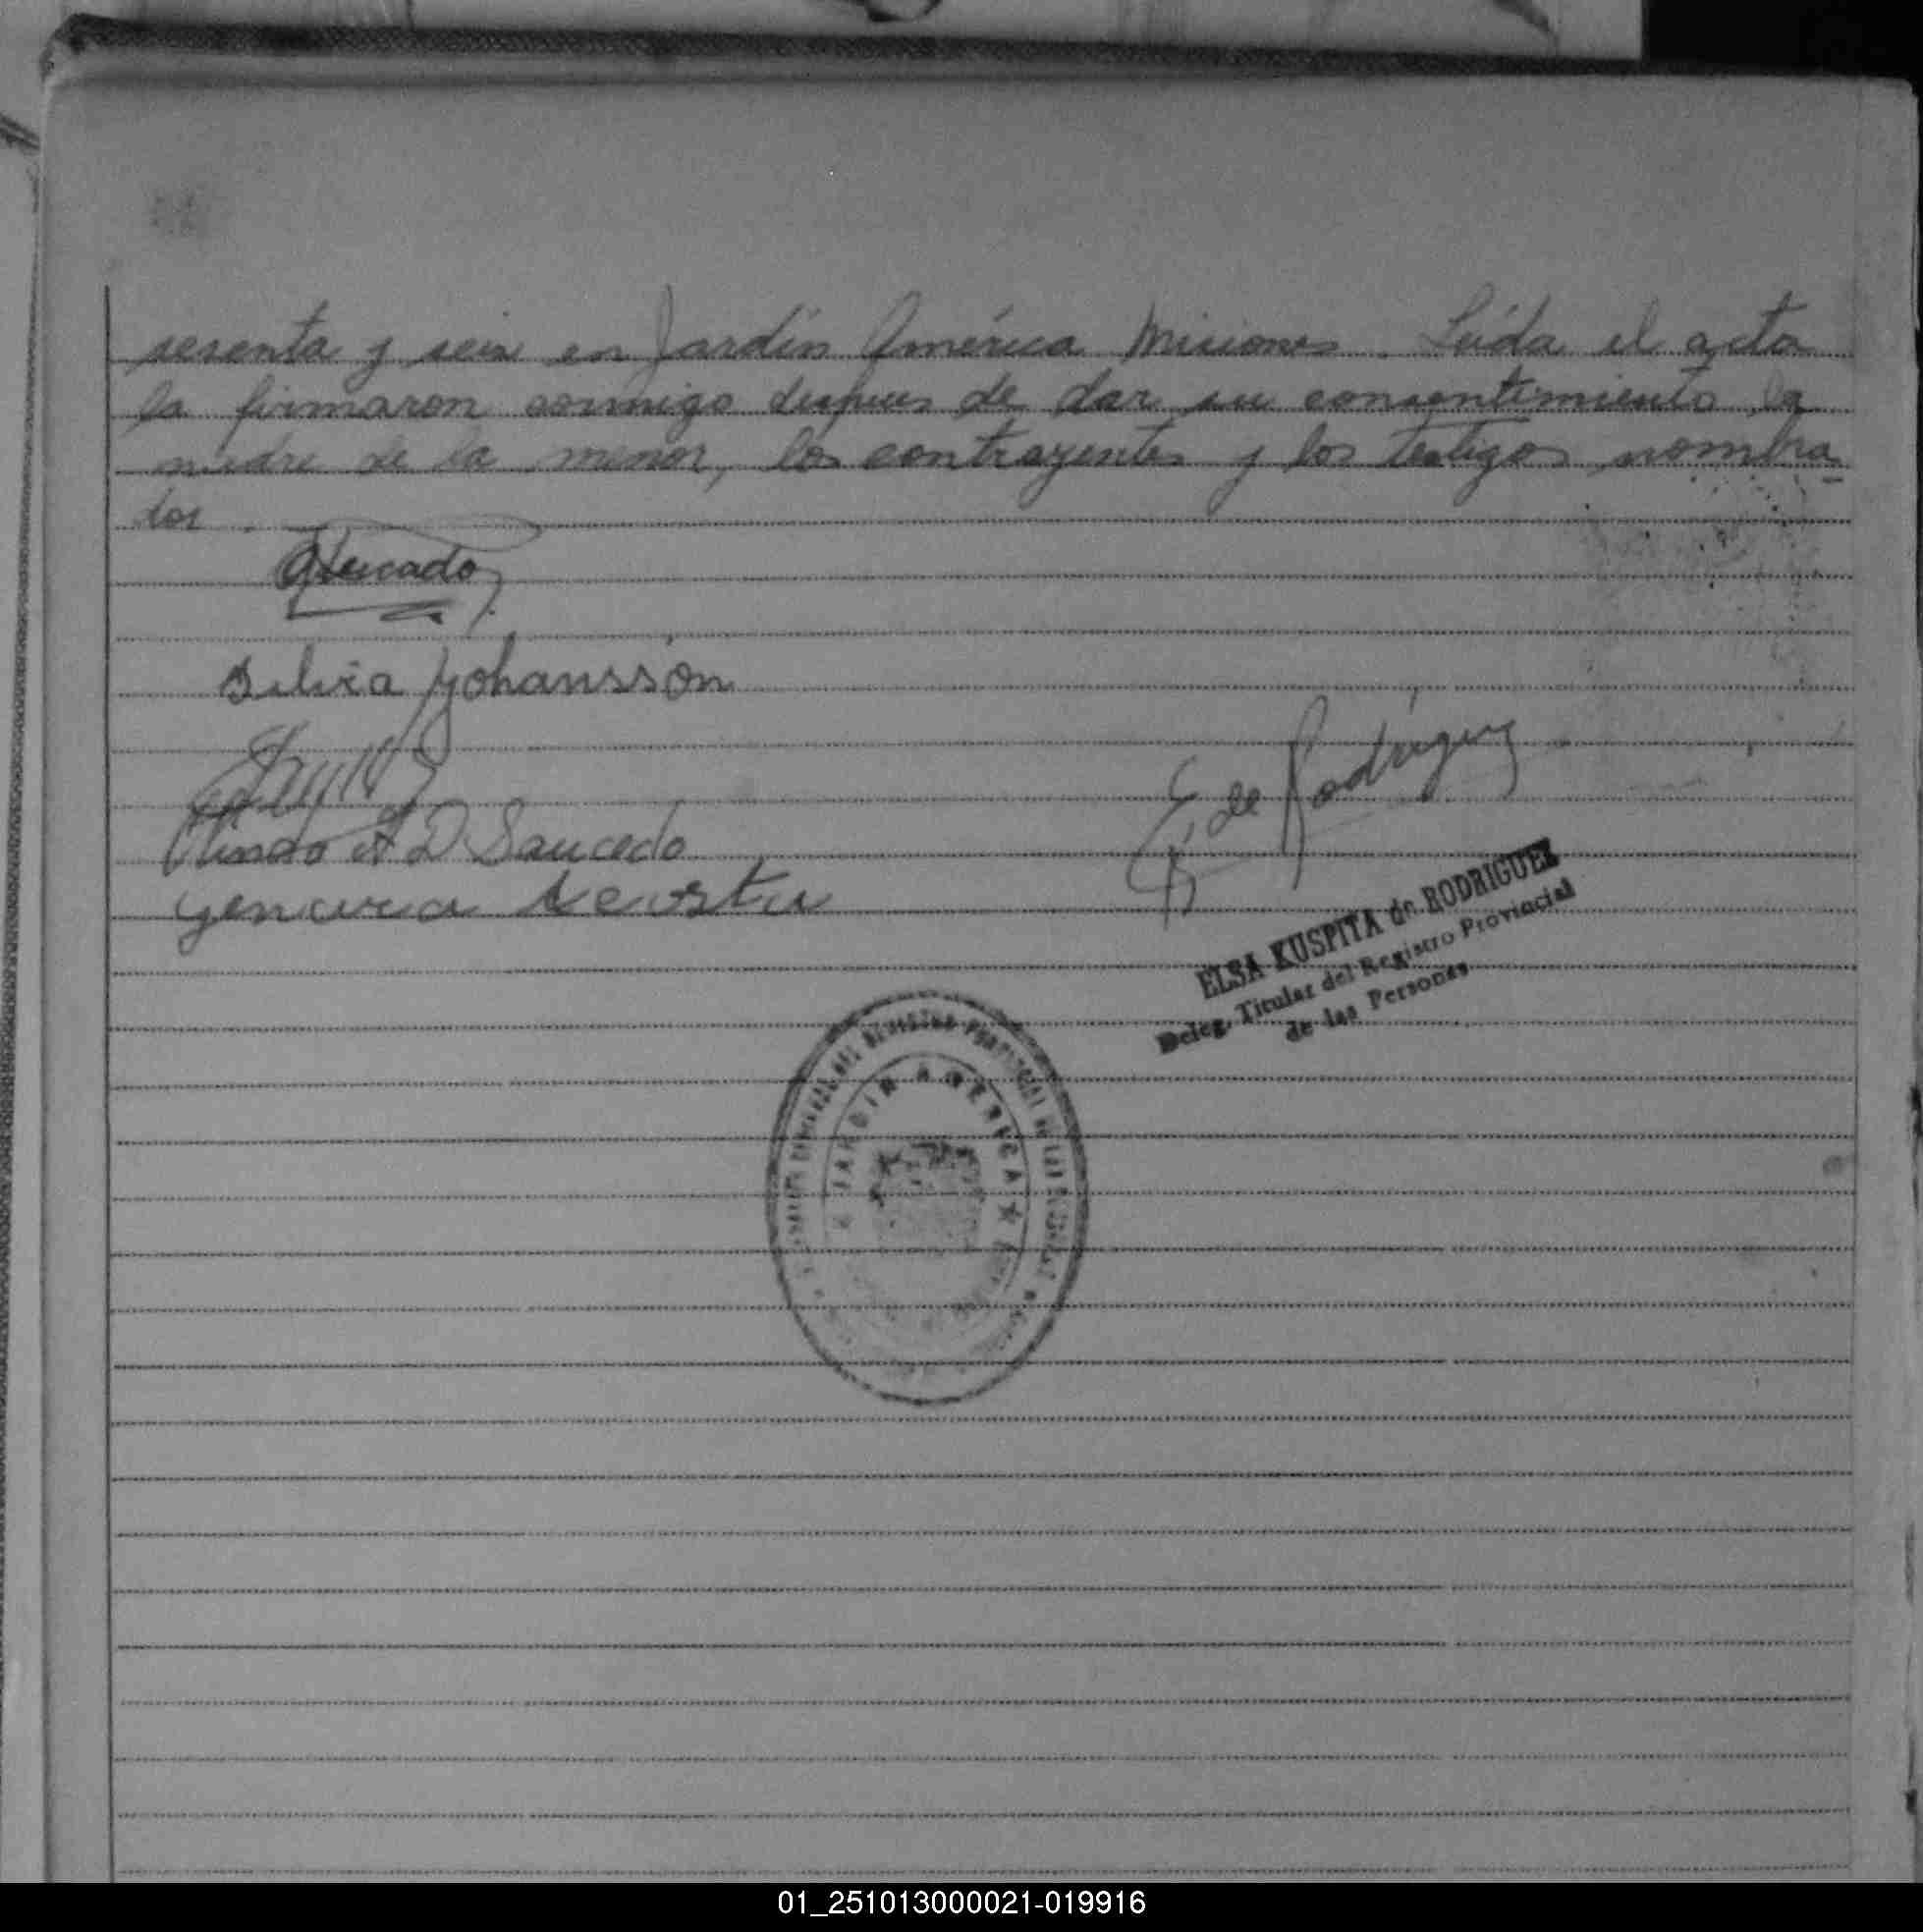 sesenta y seis en Jardín América Misiones. Leída el acta
la firmaron conmigo despues de dar su consentimiento la
madre de la menor, los contrayentes y los testigos nombra
dos.
Silvia Yohansson
E. de Rodriguez
A D Saucedo
Genara Acosta
ELSA KUSPITA de RODRIGUEZ
Deleg. Titular del Registro Provincial
de las Personas
JARDIN AMERICA
01_251013000021-019916